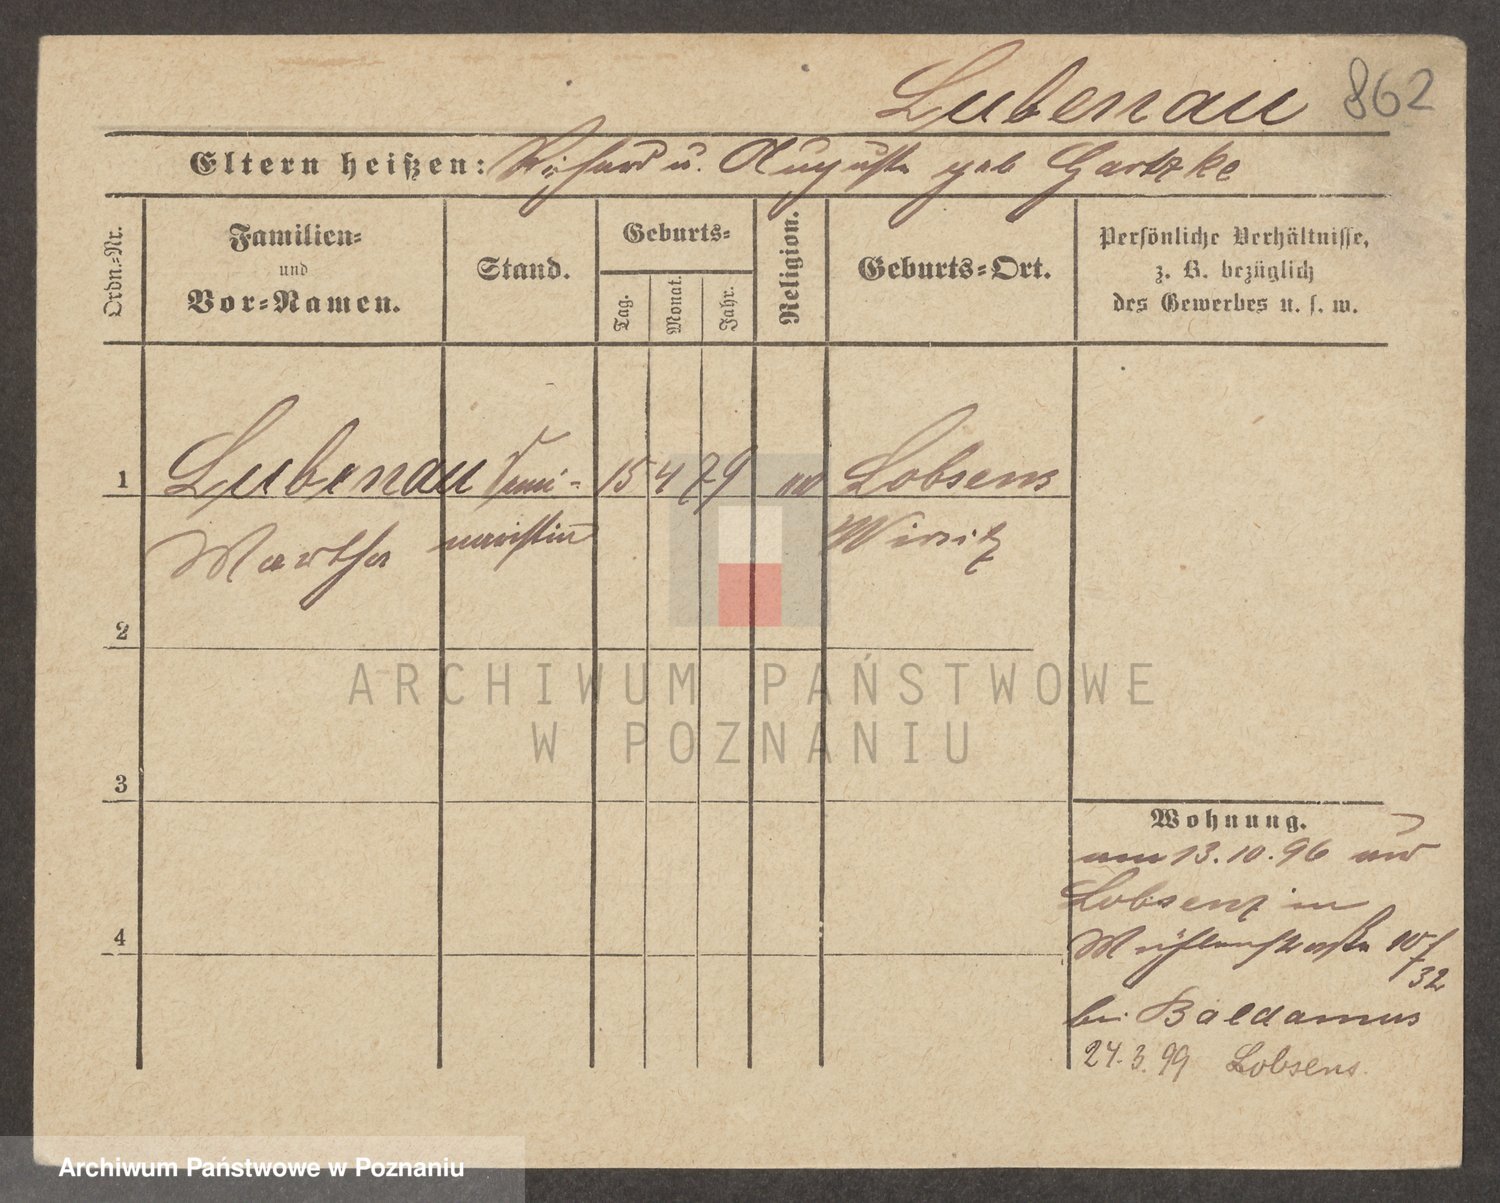 Lubenau 862
Eltern heißen: Richard u. Auguste geb Gartzke
Ordn.-Nr.
Familien-
und
Vor-Namen.
Stand.
Geburts-
Tag.
Monat.
Jahr.
Religion.
Geburts-Ort.
Persönliche Verhältnisse,
z. B. bezüglich
des Gewerbes u. s. w.
1 Lubenau Semi- 15 4 79 Lobsens
Martha naristin Wirsitz
2
3
4
Wohnung.
am 13.10.96 aus
Lobsens in
Mühlenstraße 10/32
bei Baldamus
24.3.99 Lobsens
ARCHIWUM PAŃSTWOWE
W POZNANIU
Archiwum Państwowe w Poznaniu